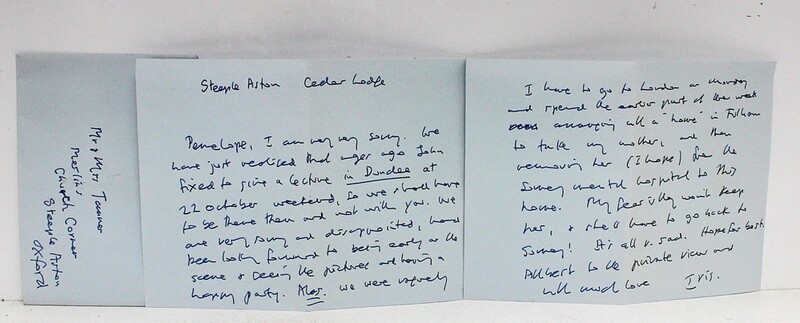 Mr & Mrs Tanner
Merlin's
Church Corner
Steeple Aston
Oxford
Steeple Aston Cedar Lodge
Penelope, I am very very sorry. We
have just realised that ages ago John
fixed to give a lecture in Dundee at
22 October weekend, so we shall have
to be there then and not with you. We
are very sorry and disappointed, had
been looking forward to being early on the
scene & seeing the pictures and having a
happy party. Alas. We were vaguely
I have to go to London on Monday
and spend the earlier part of the week
arranging with a "home" in Fulham
to take my mother, and then
removing her (I hope) from the
Surrey mental hospital to this
home. My fear is they won't keep
her, & she'll have to go back to
Surrey! It's all v. sad. Hope for best.
All best to the private view and
with much love Iris.